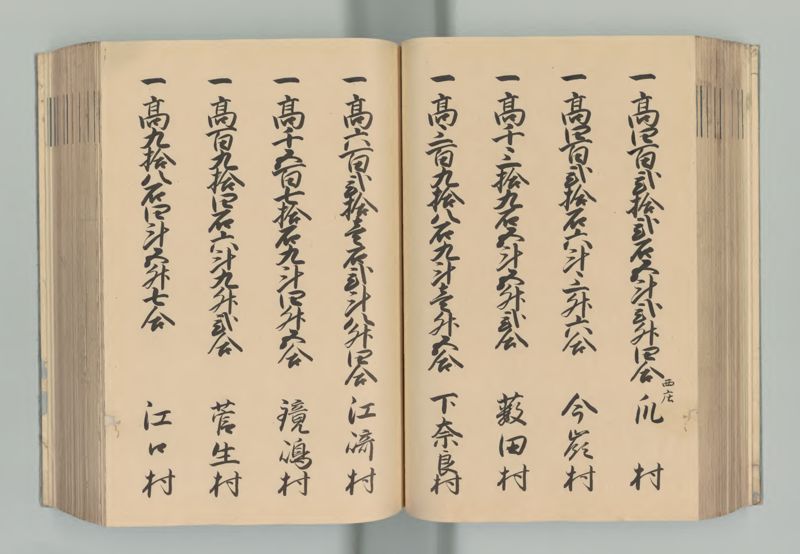 一高四百弐拾弐石五斗弐升四合 西庄 爪村
一高四百弐拾石六斗三升六合 今嶺村
一高千三拾九石五斗五升弐合 薮田村
一高三百九拾八石九斗壱升五合 下奈良村
一高六百弐拾壱石弐斗八升四合 江崎村
一高千五百七拾石九斗四升五合 鏡嶋村
一高百九拾四石六斗九升弐合 菅生村
一高九拾八石四斗五升七合 江口村